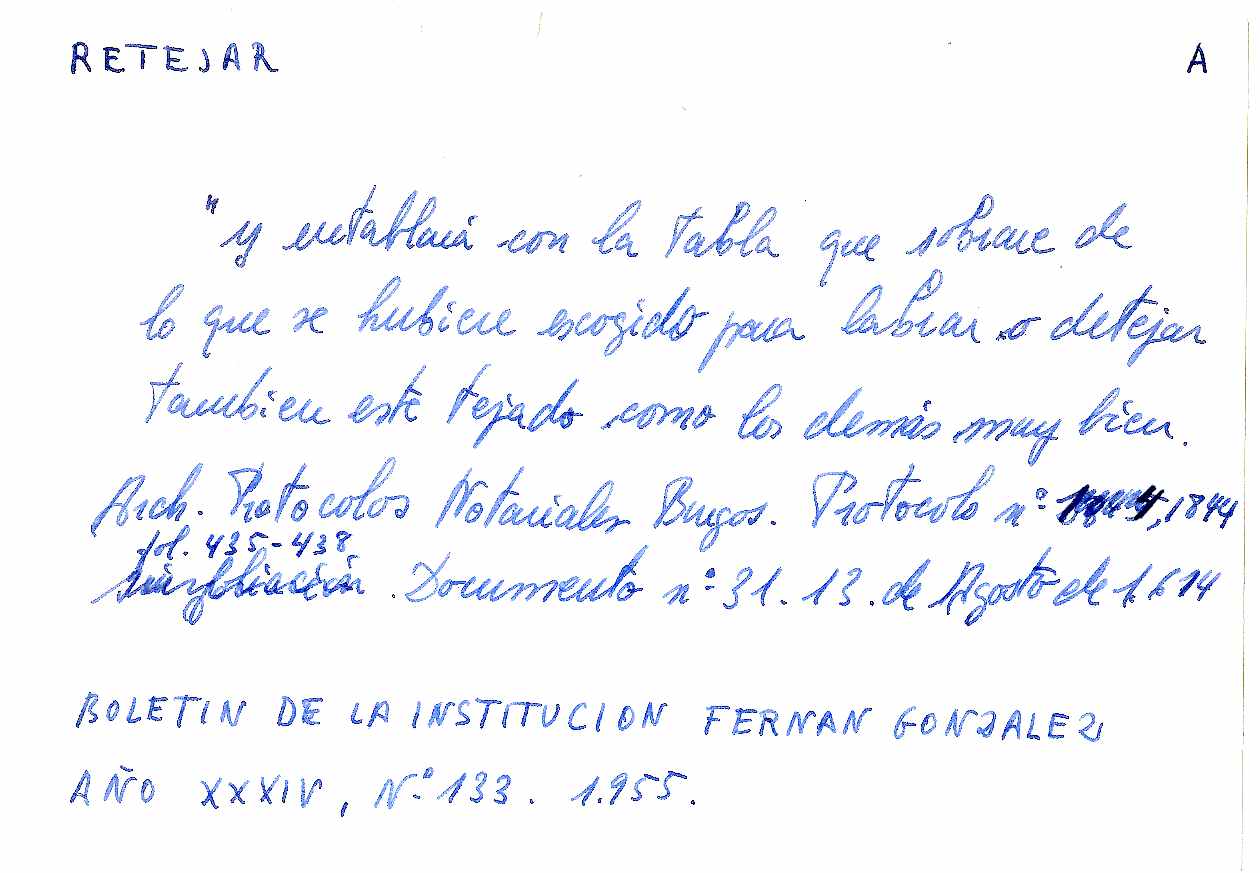 RETEJAR A
"y entablará con la tabla que sobrare de
lo que se hubiere escogido para labrar o detejar
tambien este tejado como los demás muy bien.
Arch. Protocolos Notariales Burgos. Protocolo nº 1844
fol. 435-438
Documento nº 31. 13. de Agosto de 1614
BOLETIN DE LA INSTITUCION FERNAN GONZALEZ
AÑO XXXIV, Nº 133. 1.955.